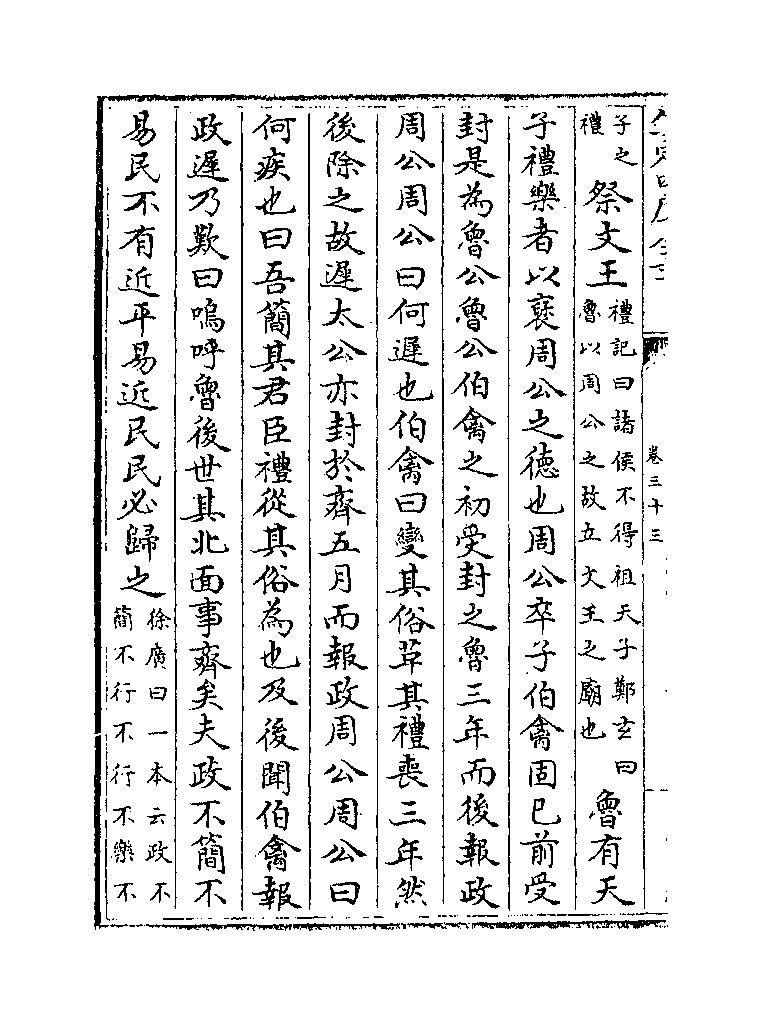 卷三十三
子之
禮
祭文王
禮記曰諸侯不得祖天子鄭玄曰
魯以周公之故立文王之廟也
魯有天
子禮樂者以襃周公之德也周公卒子伯禽固已前受
封是為魯公魯公伯禽之初受封之魯三年而後報政
周公周公曰何遲也伯禽曰變其俗革其禮喪三年然
後除之故遲太公亦封於齊五月而報政周公周公曰
何疾也曰吾簡其君臣禮從其俗為也及後聞伯禽報
政遲乃歎曰嗚呼魯後世其北面事齊矣夫政不簡不
易民不有近平易近民民必歸之
徐廣曰一本云政不
簡不行不行不樂不